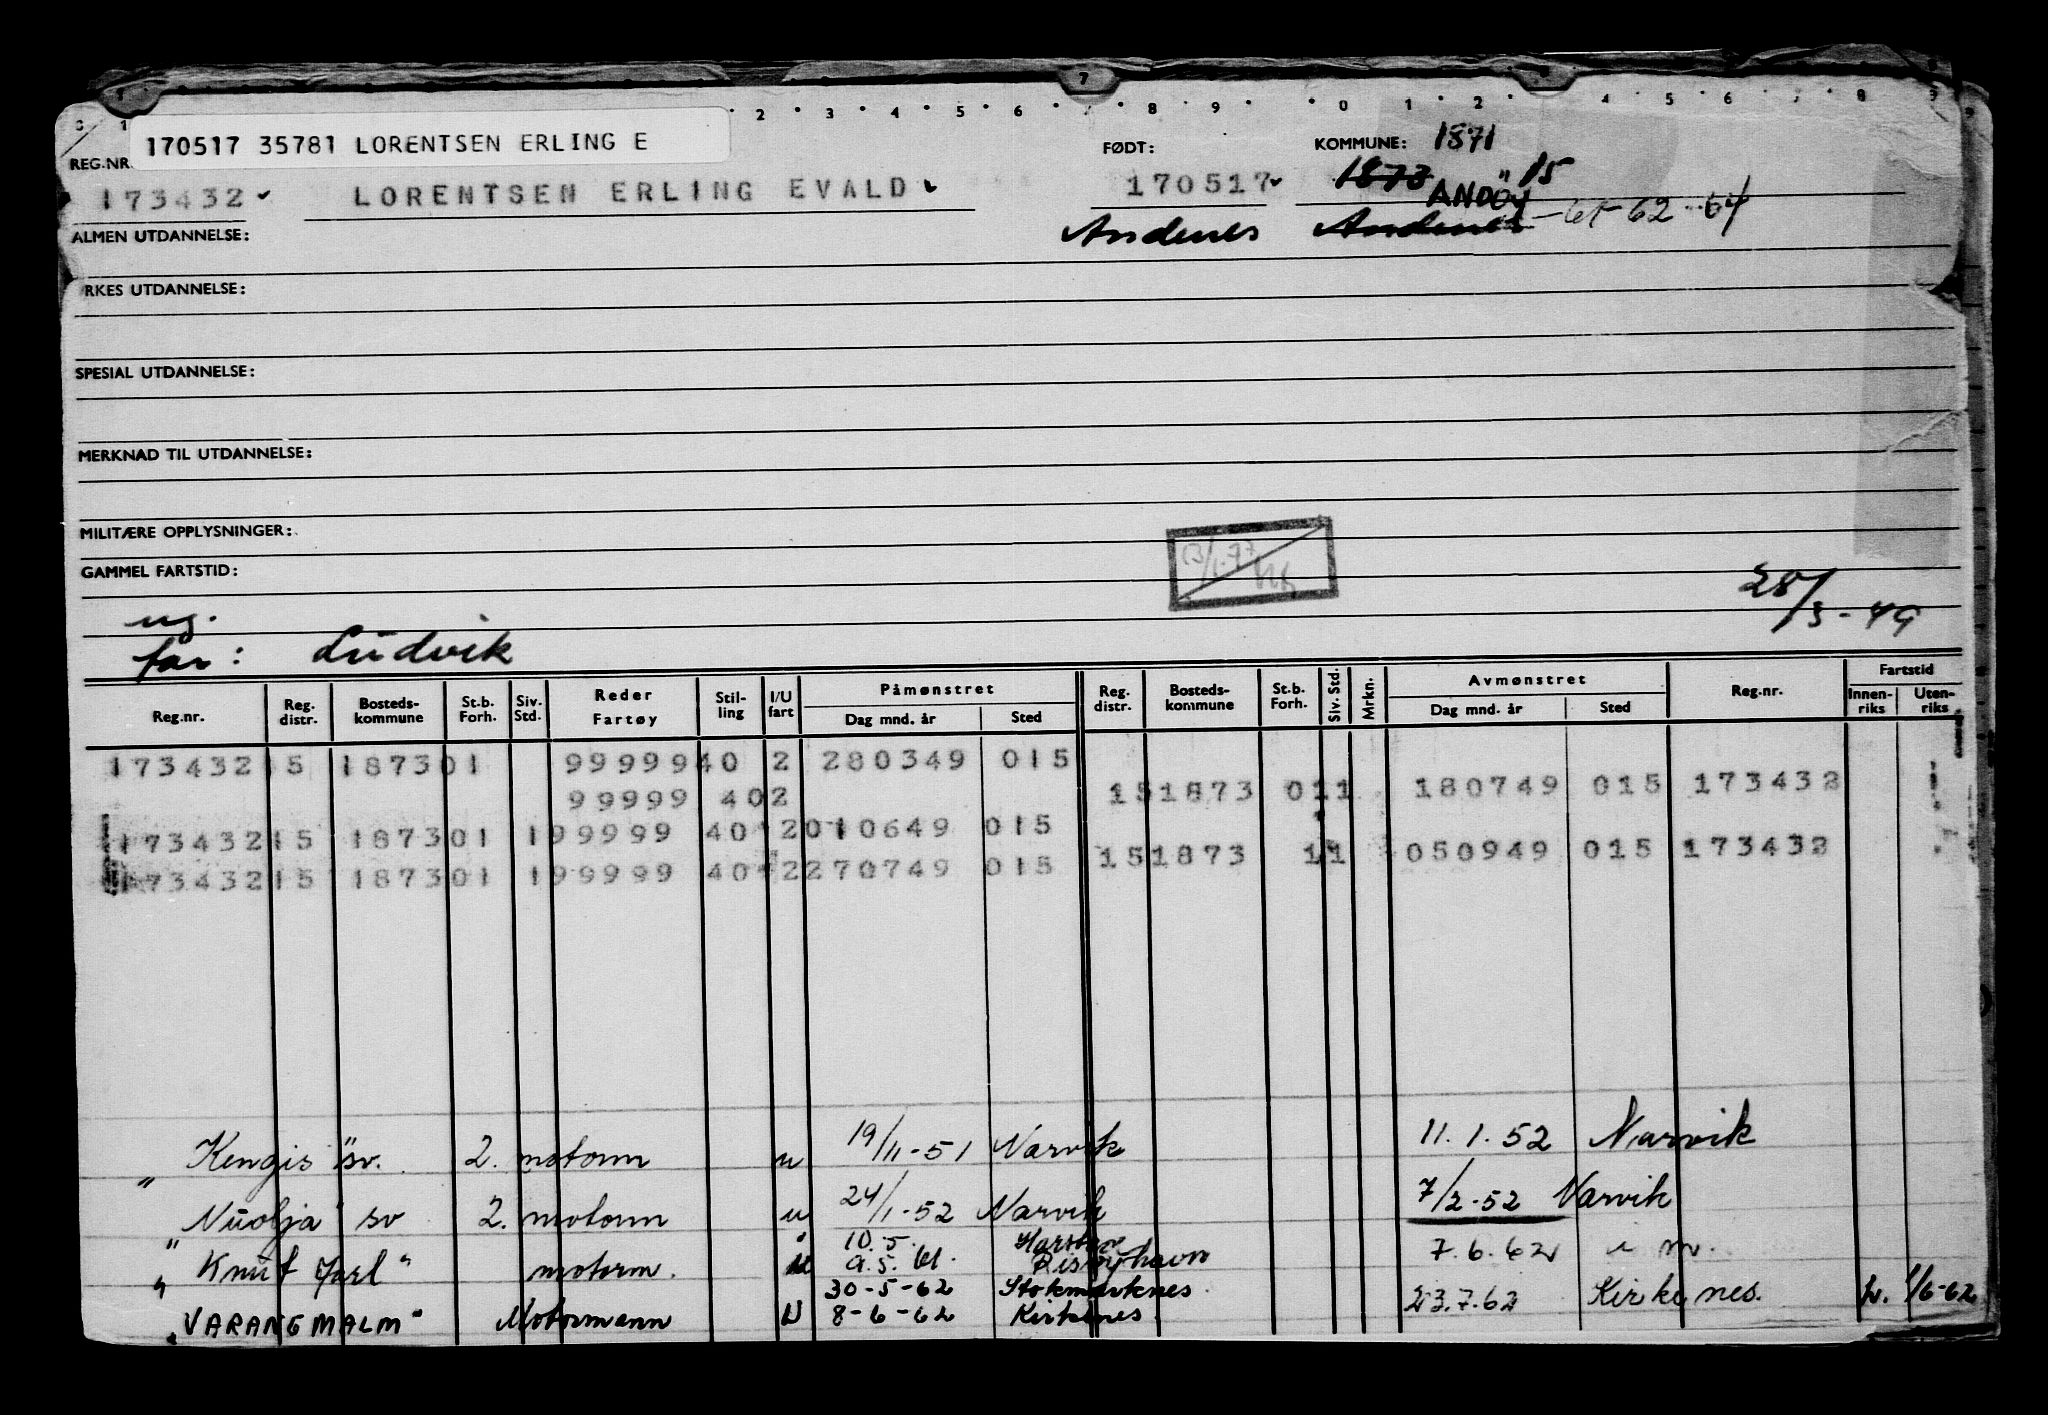 170517 35781 LORENTSEN ERLING E
REG.NR. FØDT: KOMMUNE: 1871
173432 LORENTSEN ERLING EVALD 170517 1873 15
ANDÖY
ALMEN UTDANNELSE: Andenes Andenes - 61-62-64
YRKES UTDANNELSE:
SPESIAL UTDANNELSE:
MERKNAD TIL UTDANNELSE:
MILITÆRE OPPLYSNINGER:
GAMMEL FARTSTID:
ug. 28/3-49
far: Ludvik
Reg.nr. Reg. distr. Bosteds-kommune St.b. Forh. Siv. Std. Reder Fartøy Stil-ling I/U fart Påmønstret Dag mnd. år Sted Reg. distr. Bosteds-kommune St.b. Forh. Siv. Std. Mrkn. Avmønstret Dag mnd. år Sted Reg.nr. Fartstid Innen-riks Uten-riks
173432 15 1873 01 99999 40 2 280349 015
99999 40 2 15 1873 01 1 180749 015 173432
173432 15 1873 01 1 99999 40 2 010649 015
173432 15 1873 01 1 99999 40 2 270749 015 15 1873 1 1 050949 015 173432
"Kengis" sv. 2. motorm u 19/11-51 Narvik 11.1.52 Narvik
"Nuolja" sv 2. motorm u 24/1-52 Narvik 7/2-52 Narvik
10.5. Harstad
"Knut Jarl" motorm. u 9.5.61. Risøyhavn 7.6.62
30-5-62 Stokmarknes
"VARANGMALM" Motormann U 8-6-62 Kirkenes 23.7.62 Kirkenes. 1/6-62